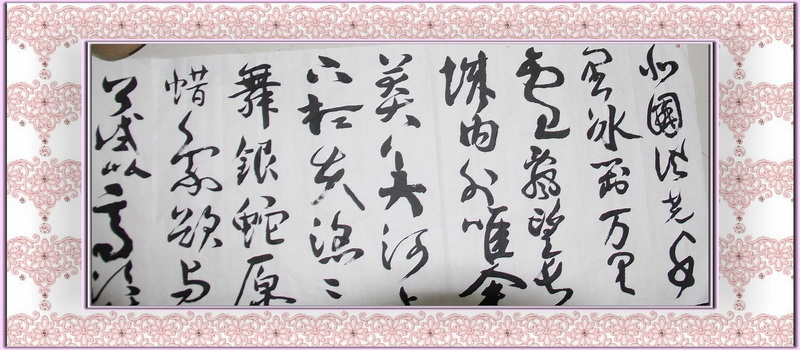 北國风光千
里冰封万里
雪飘望长
城内外唯余
莽々大河上
下顿失滔々
舞銀蛇原
蜡象欲与
公试比高